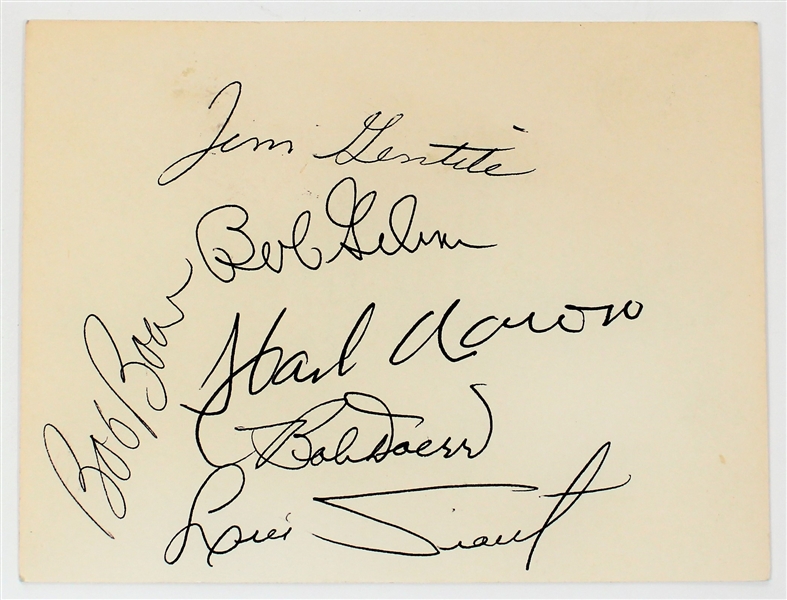 Jim Gentile
Bob Gibson
Hank Aaron
Bob Doerr
Luis Tiant
Bob Boar